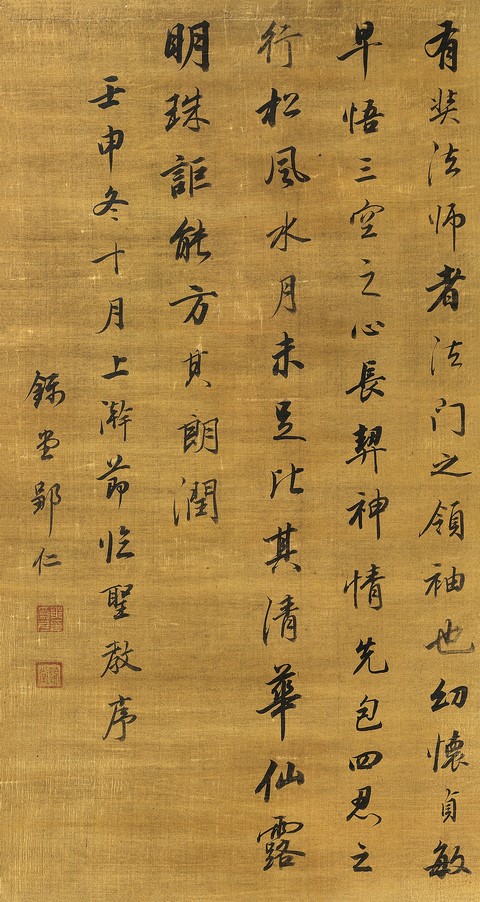 有奘法师者法门之領袖也幼懷貞敏
早悟三空之心長契神情先包四忍之
行松風水月未足比其清華仙露
明珠詎能方其朗潤
壬申冬十月上澣節臨聖教序
堂仁